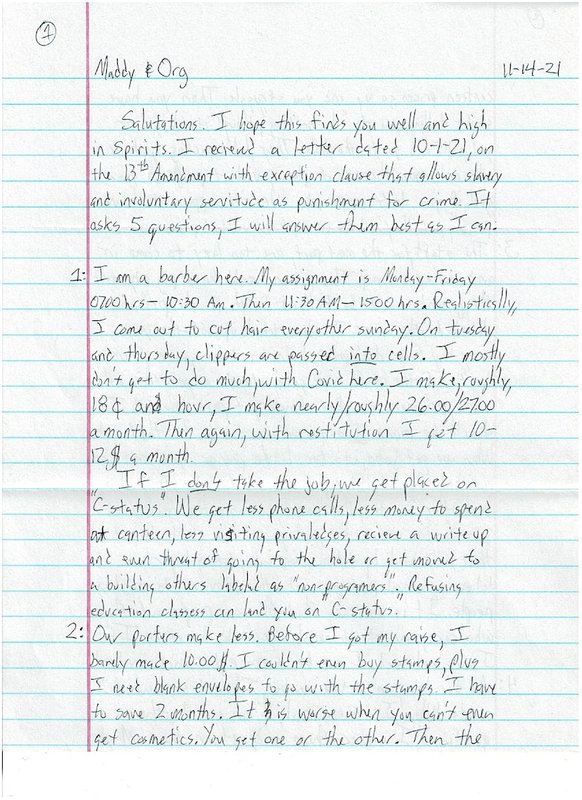 1
Maddy & Org 11-14-21
Salutations. I hope this finds you well and high
in Spirits. I recieved a letter dated 10-1-21, on
the 13th Amendment with exception clause that allows slavery
and involuntary servitude as punishment for crime. It
asks 5 questions, I will answer them best as I can.
1: I am a barber here. My assignment is Monday-Friday
0700 hrs - 10:30 Am. Then 11:30 AM - 1500 hrs. Realistically,
I come out to cut hair every other sunday. On tuesday
and thursday, clippers are passed into cells. I mostly
don't get to do much, with Covid here. I make, roughly,
18¢ and hour, I make nearly/roughly 26.00/27.00
a month. Then again, with restitution I get 10-
12$ a month.
If I don't take the job, we get placed on
"C-status". We get less phone calls, less money to spend
at canteen, less visiting priviledges, recieve a write up
and even threat of going to the hole or get moved to
a building others labeled as "non-programers". Refusing
education classess can land you on "C-status."
2: Our porters make less. Before I got my raise, I
barely made 10.00$. I couldn't even buy stamps, plus
I need blank envelopes to go with the stamps. I have
to save 2 months. It is worse when you can't even
get cosmetics. You get one or the other. Then the